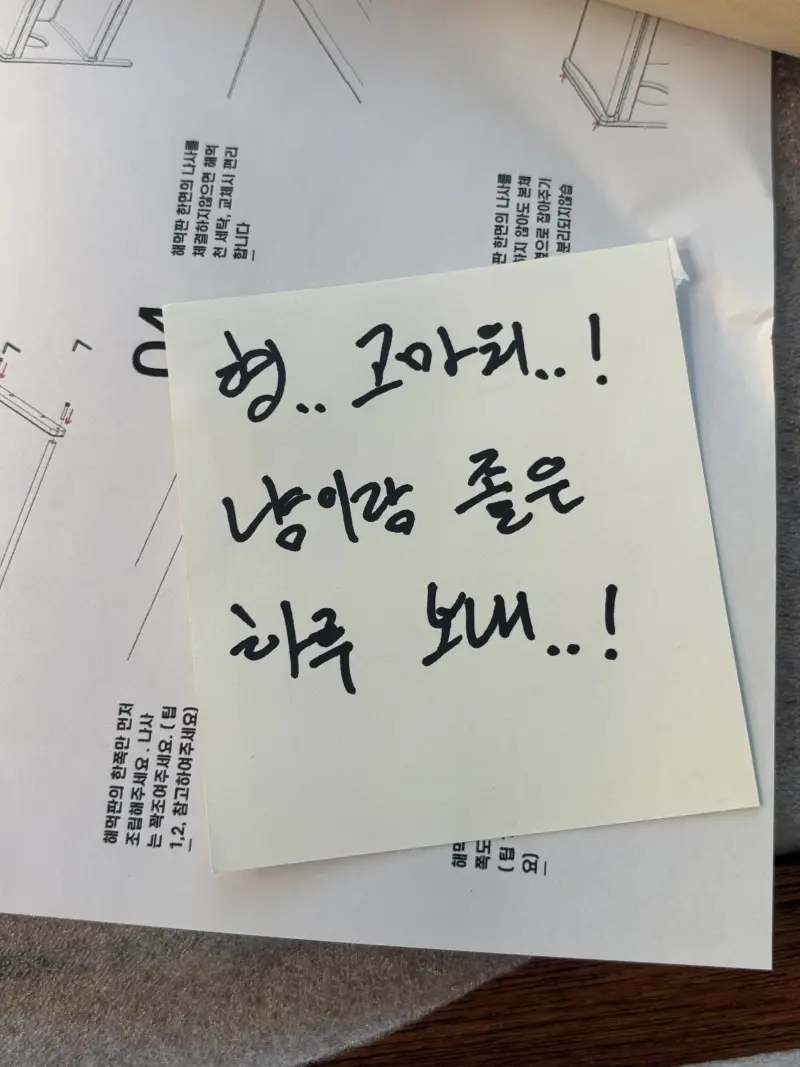 해먹판 한면의 나사를
체결하지않으면 해먹
천 세탁, 교체시 편리
합니다
한면의 나사를
하지 않아도 본체
잡아주기
분리되지않습
7
7
형.. 고마워..!
냥이랑 좋은
하루 보내..!
해먹판의 한쪽만 먼저
조립해주세요 . 나사
는 꽉조여주세요. ( 팁
1,2, 참고하여주세요)
쪽도
( 팁
요)